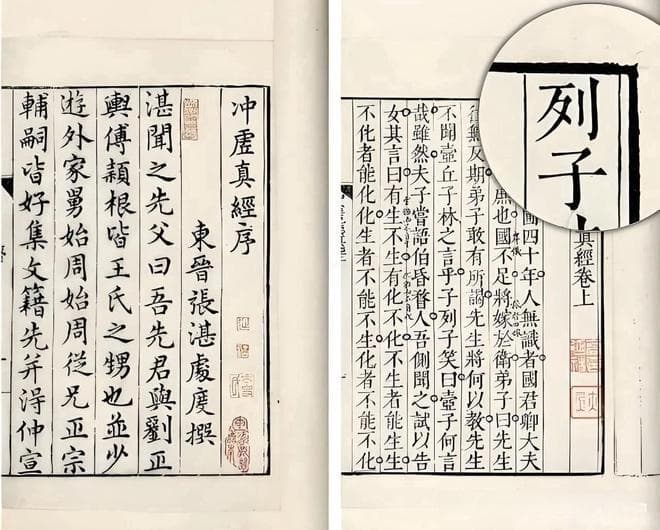 冲虛真經序
東晉張湛處度撰
湛聞之先父曰吾先君與劉正
輿傅穎根皆王氏之甥也並少
遊外家舅始周始周從兄正宗
輔嗣皆好集文籍先并淂仲宣
列子
真經卷上
四十年人無識者國君卿大夫
庶也國不足將嫁於衛弟子曰先生
往無反期弟子敢有所謁先生將何以教先生
不聞壺丘子林之言乎子列子笑曰壺子何言
哉雖然夫子嘗語伯昏瞀人吾側聞之試以告
女其言曰有生不生有化不化不生者能生生
不化者能化化生者不能不生化者不能不化